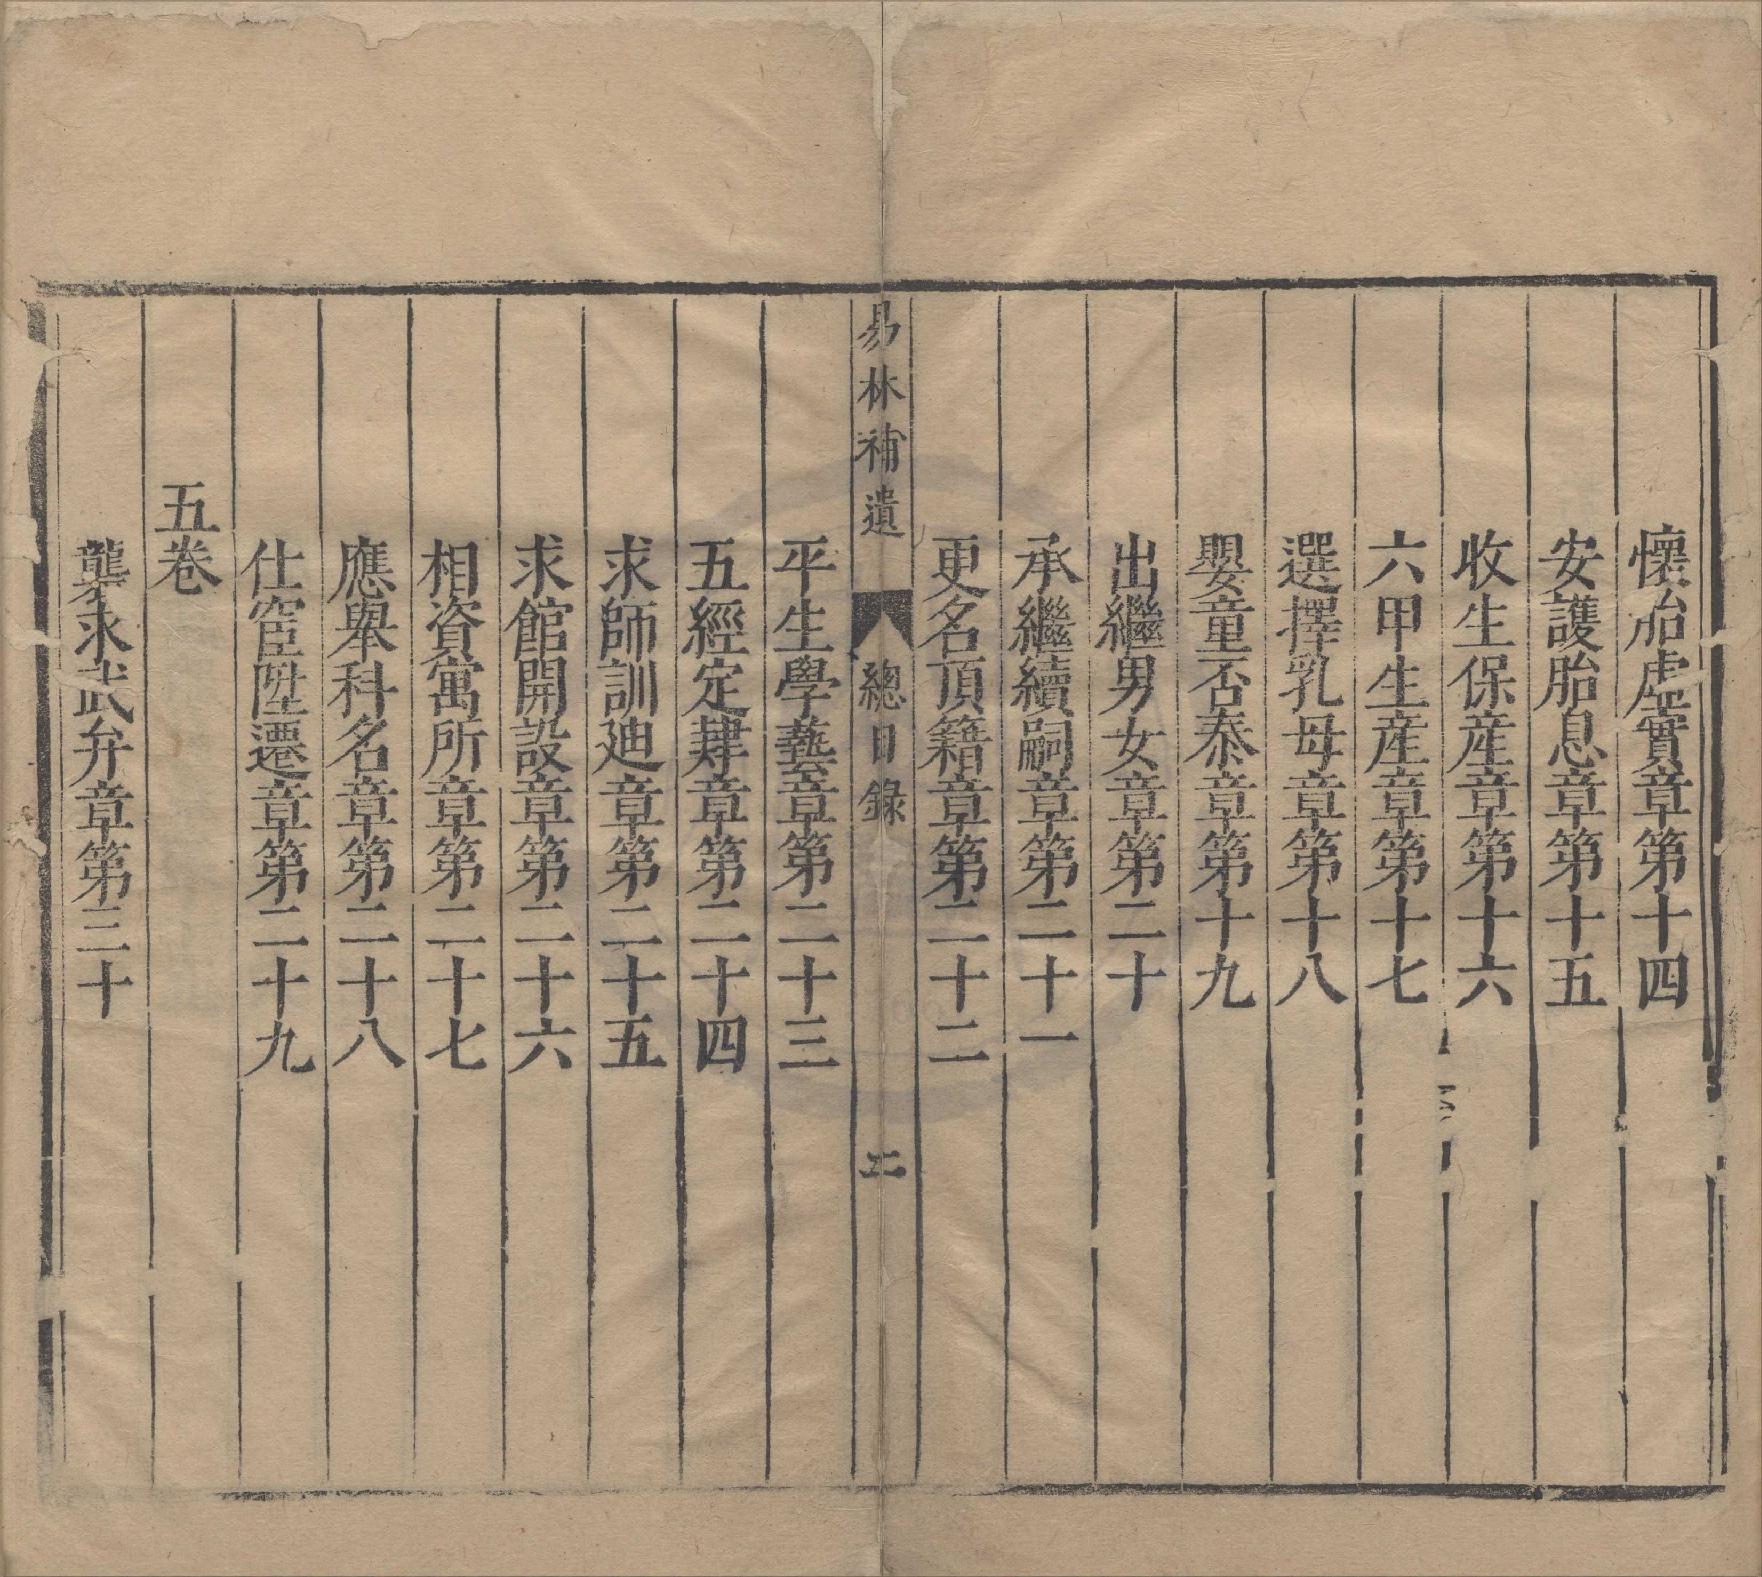 懷胎虛實章第十四
安護胎息章第十五
收生保産章第十六
六甲生産章第十七
選擇乳母章第十八
嬰童否泰章第十九
出繼男女章第二十
承繼續嗣章第二十一
更名頂籍章第二十二
易林補遺
總目錄
二
平生學藝章第二十三
五經定肄章第二十四
求師訓廸章第二十五
求館開設章第二十六
相資寓所章第二十七
應舉科名章第二十八
仕宦陞遷章第二十九
五卷
襲求武弁章第三十